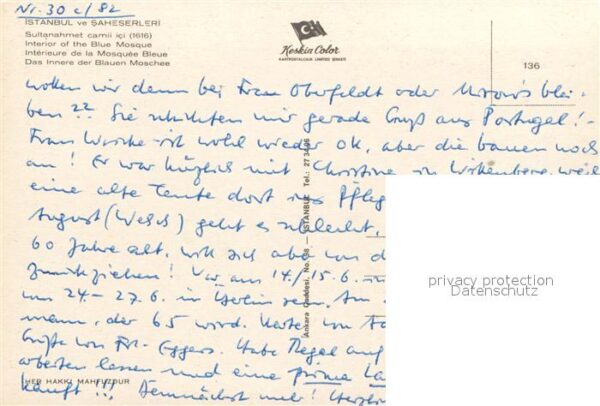 Nr. 30 c/82
ISTANBUL ve ŞAHESERLERİ
Sultanahmet camii içi (1616)
Interior of the Blue Mosque
Intérieure de la Mosquée Bleue
Das Innere der Blauen Moschee
Keskin Color
KARTPOSTALCILIK LIMITED ŞİRKETİ
136
wollen wir denn bei Frau Oberfeldt oder blei-
ben?? Sie schickten mir gerade Gruß aus Portugal!
Frau ist wohl wieder OK, aber die bauen noch
an! Er war kürzlich mit Christine in weil
eine alte Tante dort ins Pfleg
August (Welsch) geht es schlecht,
60 Jahre alt, will sich aber von d
zurückziehen! War am 14./15.6.
um 24–27.6. in Berlin sein. Am
mann, der 65 wird. Karte von
Grüße von Frl. Eggers. Habe Flügel auf
arbeiten lassen und eine prima
kauft!!! Demnächst mehr! Herzl
Ankara Caddesi. No. 98 — İSTANBUL Tel.: 27 34
HER HAKKI MAHFUZDUR
privacy protection
Datenschutz